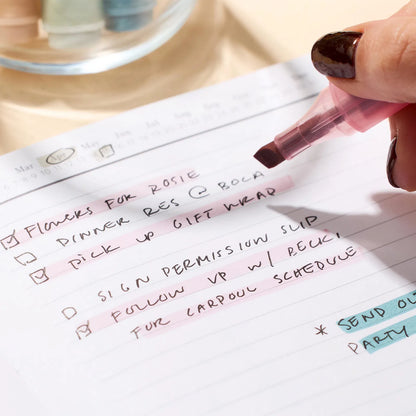 Mar Apr May Jun Jul Aug Sep
FLOWERS FOR ROSIE
DINNER RES @ BOCA
PICK UP GIFT WRAP
SIGN PERMISSION SLIP
FOLLOW UP W/ RECK,
FOR CARPOUL SCHEDULE
* SEND OU
PARTY